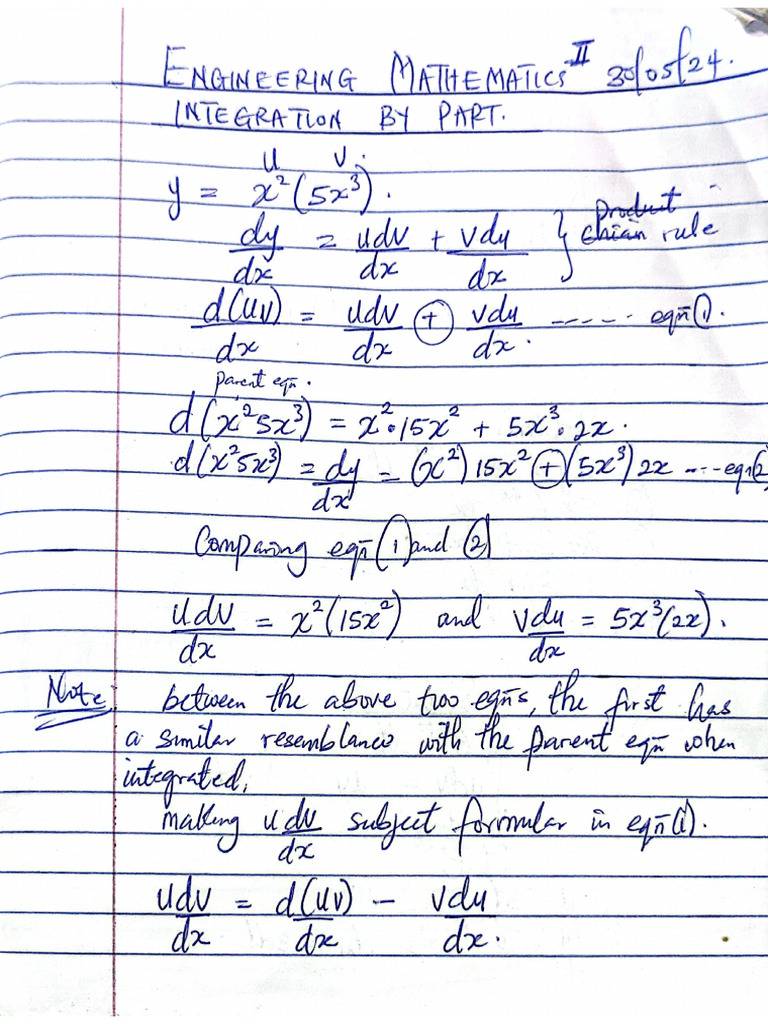 ENGINEERING MATHEMATICS II 30/05/24.
INTEGRATION BY PART.
u v.
y = x²(5x³).
dy/dx = udv/dx + vdu/dx } product chian rule
d(uv)/dx = udv/dx + vdu/dx. ------ eqn̄(1).
parent eqn.
d(x²5x³) = x²•15x² + 5x³•2x.
d(x²5x³) = dy/dx = (x²)15x² + (5x³)2x ---eqn̄(2)
Comparing eqn̄(1) and (2)
udv/dx = x²(15x²) and vdu/dx = 5x³(2x).
Note: between the above two eqn̄s, the first has
a similar resemblance with the parent eqn when
integrated,
making udv/dx subject formular in eqn̄(1).
udv/dx = d(uv)/dx - vdu/dx.